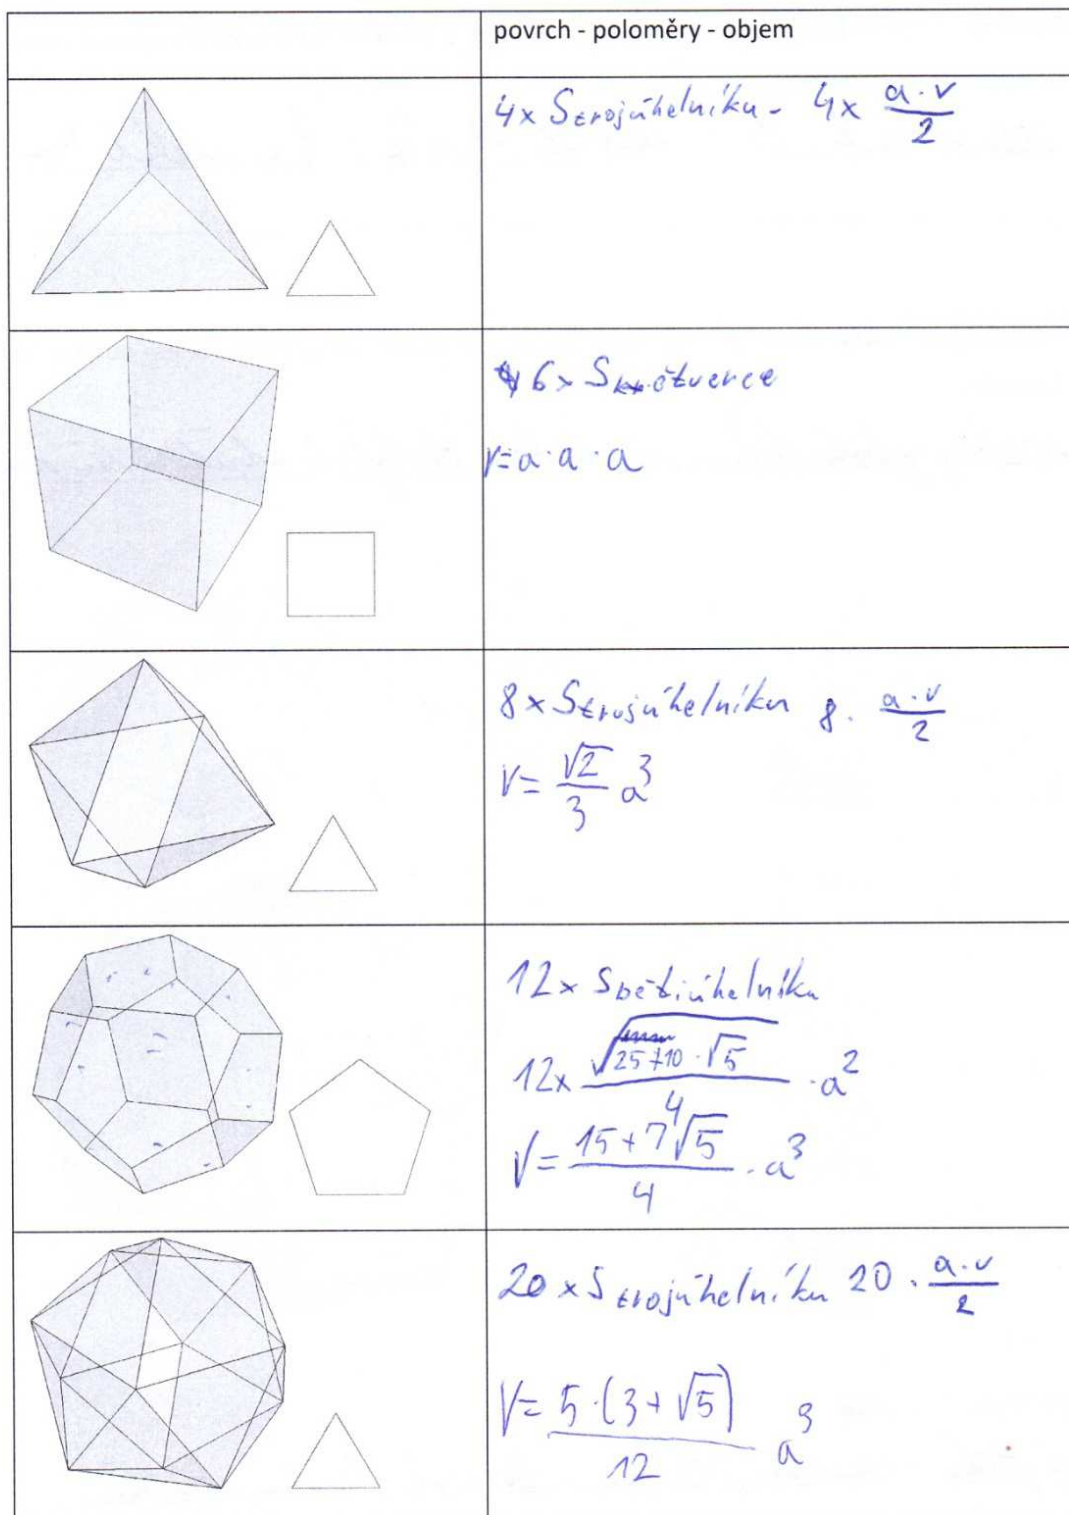 povrch - poloměry - objem
4x Strojúhelníku - 4x a·v/2
6x Sčtverce
V=a·a·a
8x Strojúhelníku 8· a·v/2
V= √2/3 a³
12x Spětiúhelníku
12x √(25+10·√5)/4 ·a²
V= (15+7√5)/4 ·a³
20x Strojúhelníku 20· a·v/2
V= 5·(3+√5)/12 a³